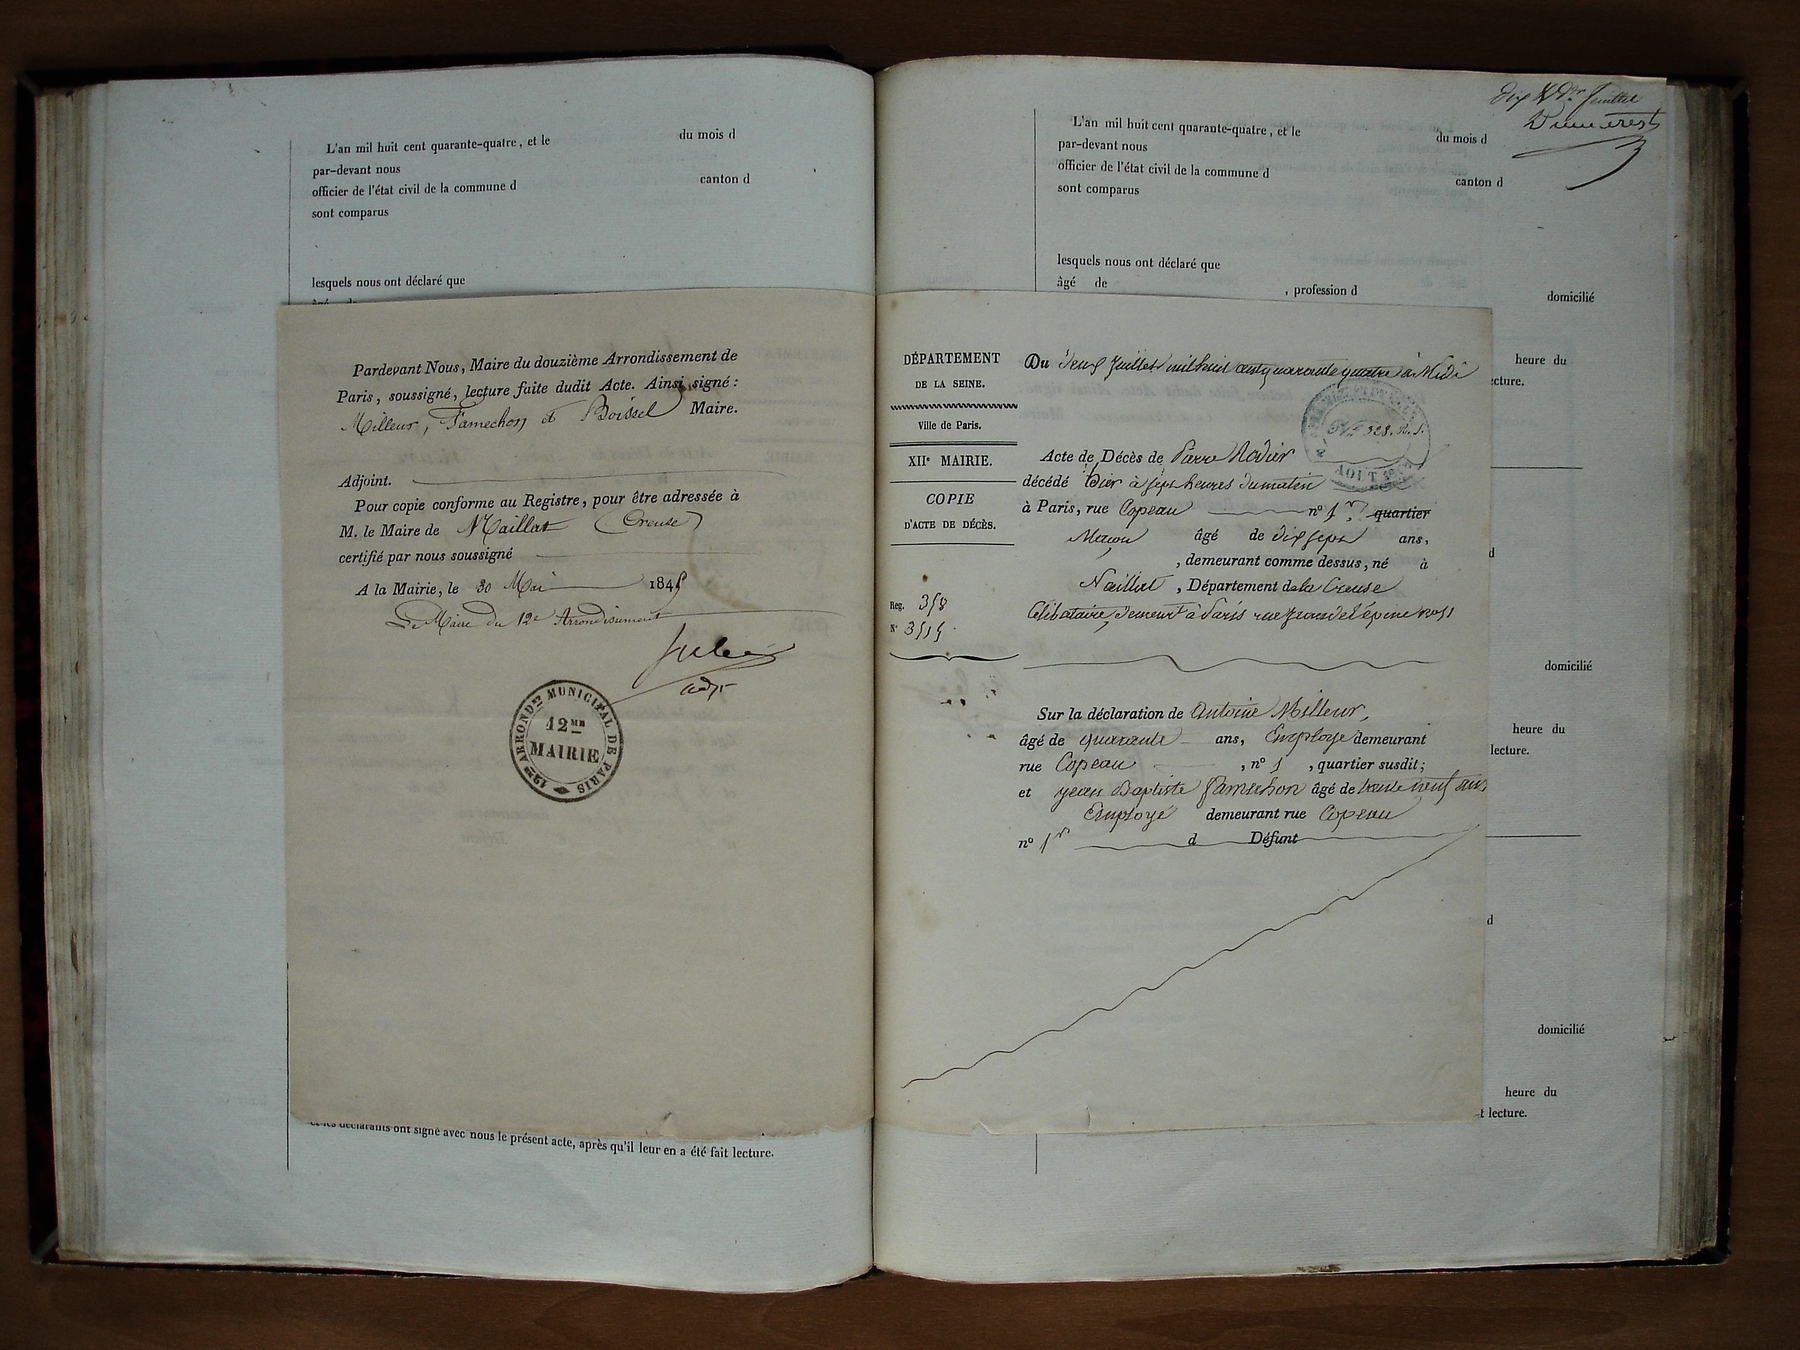 L'an mil huit cent quarante-quatre, et le du mois d
par-devant nous
officier de l'état civil de la commune d canton d
sont comparus
lesquels nous ont déclaré que
âgé de
Pardevant Nous, Maire du douzième Arrondissement de
Paris, soussigné, lecture faite dudit Acte. Ainsi signé :
Milleur, Famechon et Boissel Maire.
Adjoint.
Pour copie conforme au Registre, pour être adressée à
M. le Maire de Naillat (Creuse)
certifié par nous soussigné
A la Mairie, le 30 Mai 1845
Le Maire du 12e Arrondissement
adjt
12me ARRONDt MUNICIPAL DE PARIS
12ME
MAIRIE
et les déclarants ont signé avec nous le présent acte, après qu'il leur en a été fait lecture.
dix Juillet
Dumarest
L'an mil huit cent quarante-quatre, et le du mois d
par-devant nous
officier de l'état civil de la commune d canton d
sont comparus
lesquels nous ont déclaré que
âgé de , profession d domicilié
heure du
ecture.
DÉPARTEMENT
DE LA SEINE.
Ville de Paris.
XIIe MAIRIE.
COPIE
D'ACTE DE DÉCÈS.
Reg. 358
N° 3515
Du deux Juillet mil huit cent quarante quatre à Midi
AOUT
Acte de Décès de Pierre Rodier
décédé hier à sept heures du matin
à Paris, rue Copeau n° 1er quartier
Maçon âgé de dix sept ans,
, demeurant comme dessus, né à
Naillat, Département de la Creuse
Célibataire, demeurt à Paris rue Jean de l'épine no 11
Sur la déclaration de Antoine Milleur,
âgé de quarante ans, Employé demeurant
rue Copeau , n° 1 , quartier susdit;
et Jean Baptiste Famechon âgé de trente neuf ans
Employé demeurant rue Copeau
n° 1er d Défunt
d
domicilié
heure du
lecture.
d
domicilié
heure du
t lecture.